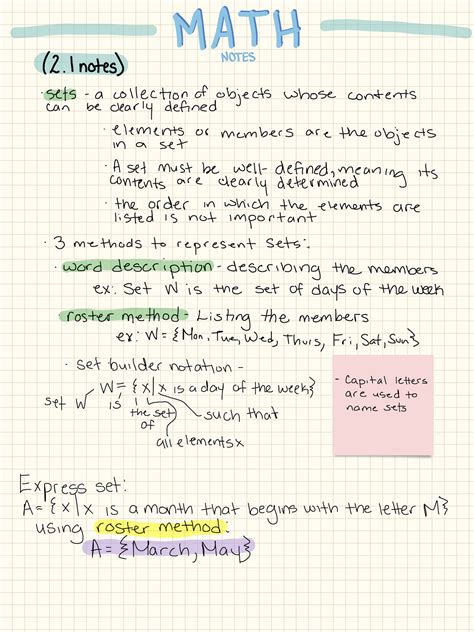 MATH
NOTES
(2.1 notes)
· sets - a collection of objects whose contents
can be clearly defined
· elements or members are the objects
in a set
· A set must be well-defined, meaning its
contents are clearly determined
· the order in which the elements are
listed is not important
· 3 methods to represent sets:
· word description - describing the members
ex: Set W is the set of days of the week
· roster method - Listing the members
ex: W = {Mon, Tue, Wed, Thurs, Fri, Sat, Sun}
· set builder notation -
W = {x | x is a day of the week}
set W is the set of such that
all elements x
- Capital letters
are used to
name sets
Express set:
A = {x | x is a month that begins with the letter M}
using roster method:
A = {March, May}